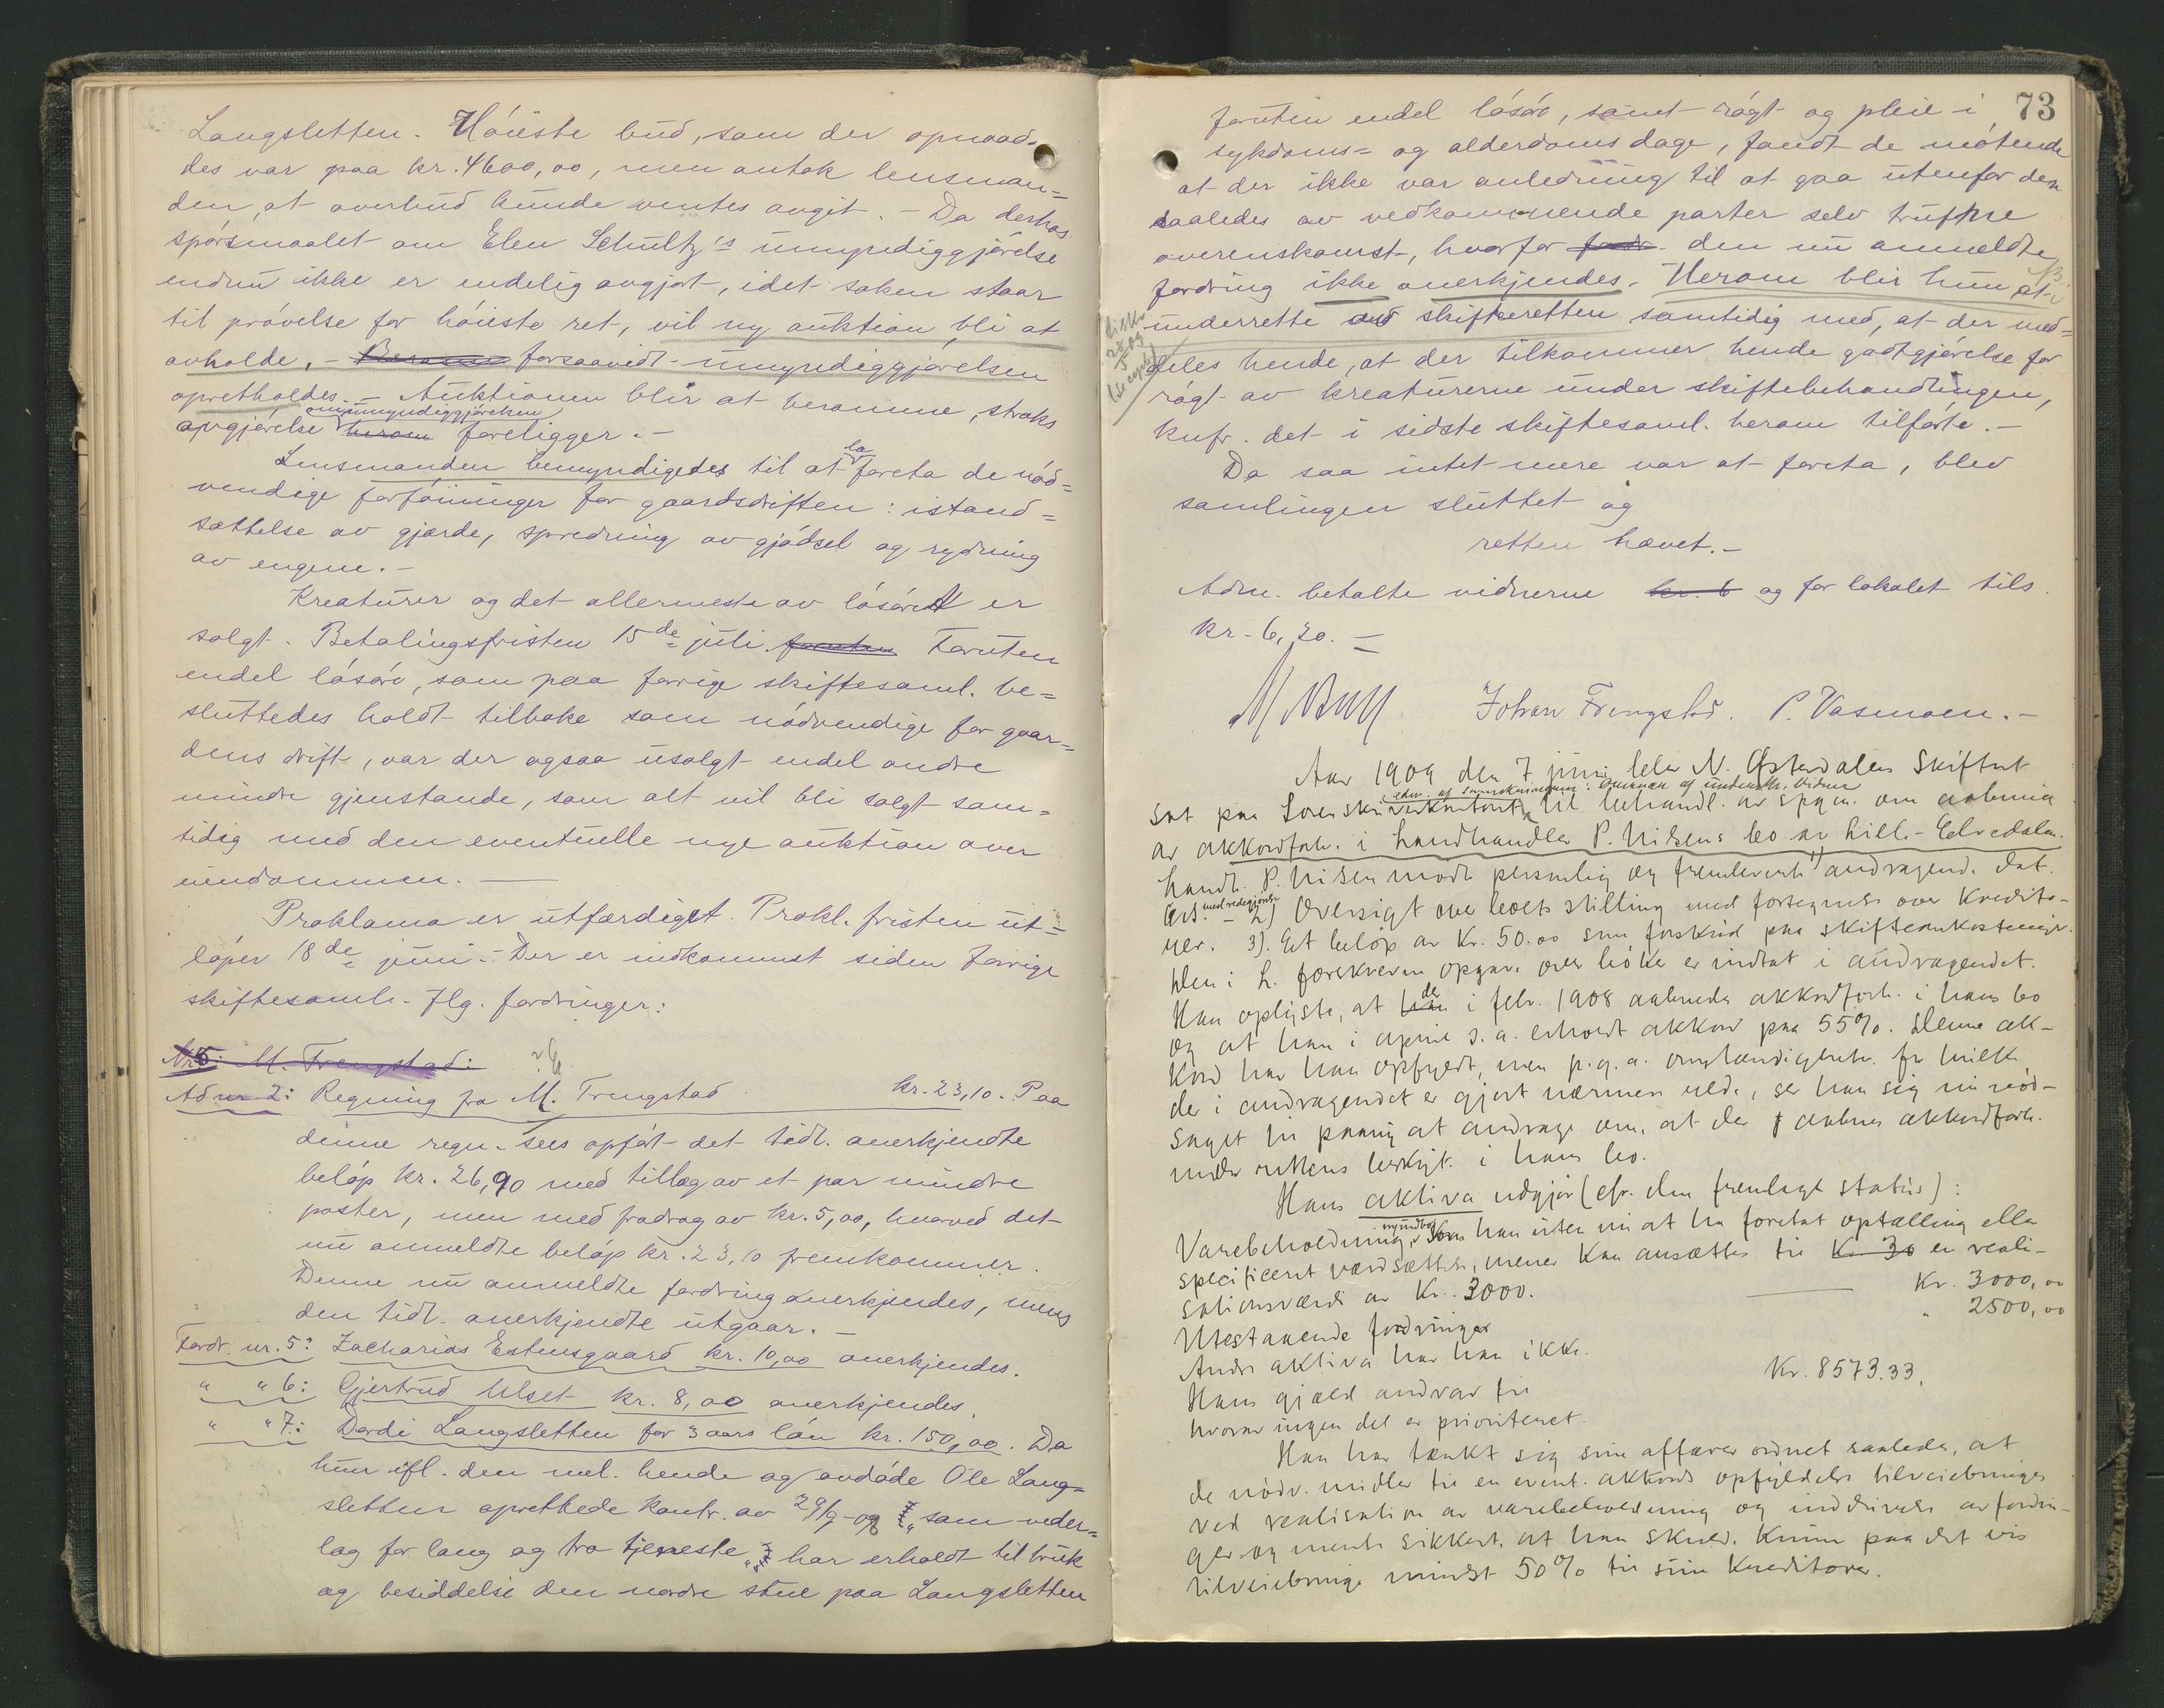 Langsletten. Høieste bud, som der opnaad-
des var paa kr. 4600,00, men antok lensman=
den, at overbud kunde ventes avgit. - Da derhos
spørsmaalet om Elen Schultz's umyndiggjørelse
endnu ikke er endelig avgjort, idet saken staar
til prøvelse for høieste ret, vil ny auktion bli at
avholde, - forsaavidt umyndiggjørelsen
opretholdes. - Auktionen blir at beramme, straks
avgjørelse om umyndiggjørelsen foreligger. -
Lensmanden bemyndigedes til at la foreta de nød=
vendige forføininger for gaardsdriften: istand=
sættelse av gjærde, spredning av gjødsel og rydning
av engene. -
Kreaturer og det allermeste av løsøret er
solgt. Betalingsfristen 15de juli. Foruten
endel løsøre, som paa forrige skiftesaml. be=
sluttedes holdt tilbake som nødvendige for gaar=
dens drift, var der ogsaa usolgt endel andre
mindre gjenstande, som alt vil bli solgt sam=
tidig med den eventuelle nye auktion over
eiendommen. —
Proklama er utfærdiget. Prokl. fristen ut=
løper 18de juni. - Der er indkommet siden forrige
skiftesaml. flg. fordringer:
Nr 5: M. Trengstad:
Adm 2: Regning fra M. Trengstad kr. 23,10. Paa
denne regn. sees opført det tidl. anerkjendte
beløp kr. 26,90 med tillæg av et par mindre
poster, men med fradrag av kr. 5,00, hvorved det
nu anmeldte beløp kr. 23,10 fremkommer.
Denne nu anmeldte fordring anerkjendes, mens
den tidl. anerkjendte utgaar. -
Fordr. nr. 5: Zacharias Estensgaard kr. 10,00 anerkjendes.
" " 6: Gjertrud Ulset kr. 8,00 anerkjendes.
" " 7: Dordi Langsletten for 3 aars løn kr. 150,00. Da
hun ifl. den mel. hende og avdøde Ole Lang=
sletten oprettede kontr. av 29/9-08 som veder=
lag for lang og tro tjeneste har erholdt til bruk
og besiddelse den nordre stue paa Langsletten
73
foruten endel løsøre, samt røgt og pleie i
sykdoms= og alderdoms dage, fandt de møtende
at der ikke var anledning til at gaa utenfor den
saaledes av vedkommende parter selv trufne
overenskomst, hvorfor den nu anmeldte
fordring ikke anerkjendes. Herom blir hun at
underrette av skifteretten samtidig med, at der med=
deles hende, at der tilkommer hende godtgjørelse for
røgt av kreaturerne under skiftebehandlingen,
knfr. det i sidste skiftesaml. herom tilførte. -
Da saa intet mere var at foreta, blev
samlingen sluttet og
retten hævet. -
Adm. betalte vidnerne kr. 6 og for lokalet tils.
kr. 6,20. —
Johan Trengstad. P. Vasmoen. -
Aar 1909 den 7 juni blev N. Østerdalens Skifteret
sat paa Sorenskriverkontoret til behandl. av spgm. om aabning
av akkordforh. i landhandler P. Nilsens bo av Lille-Elvedalen.
Landh. P. Nilsen mødte personlig og fremleverte 1) andragende dat.
2) Oversigt over boets stilling med fortegnelse over kredito-
rer. 3). Et beløp av Kr. 50.00 som forskud paa skifteomkostninger.
Den i L. foreskrevne opgave over bøker er indtat i andragendet.
Han oplyste, at der i febr. 1908 aabnedes akkordforh. i hans bo
og at han i april s.a. erholdt akkord paa 55%. Denne ak-
kord har han opfyldt, men p.g.a. omstændigheter for hvilke
der i andragendet er gjort nærmere rede, ser han sig nu nød-
saget til paany at andrage om, at der aabnes akkordforh.
under rettens bestyr. i hans bo.
Hans aktiva utgjør (cfr. den fremlagte status):
Varebeholdning, som han uten nu at ha foretat optælling eller
specificeret værdsættelse, mener kan ansættes til en reali-
sationsværdi av Kr. 3000. — Kr. 3000,00
Utestaaende fordringer " 2500,00
Andre aktiva har han ikke.
Hans gjæld andrar til Kr. 8573.33.
hvorav ingen del er prioriteret.
Han har tænkt sig sine affærer ordnet saaledes, at
de nødv. midler til en event. akkords opfyldelse tilveiebringes
ved realisation av varebeholdning og inddrivelse av fordrin-
ger og mente sikkert, at han skulde kunne paa det vis
tilveiebringe mindst 50% til sine kreditorer.